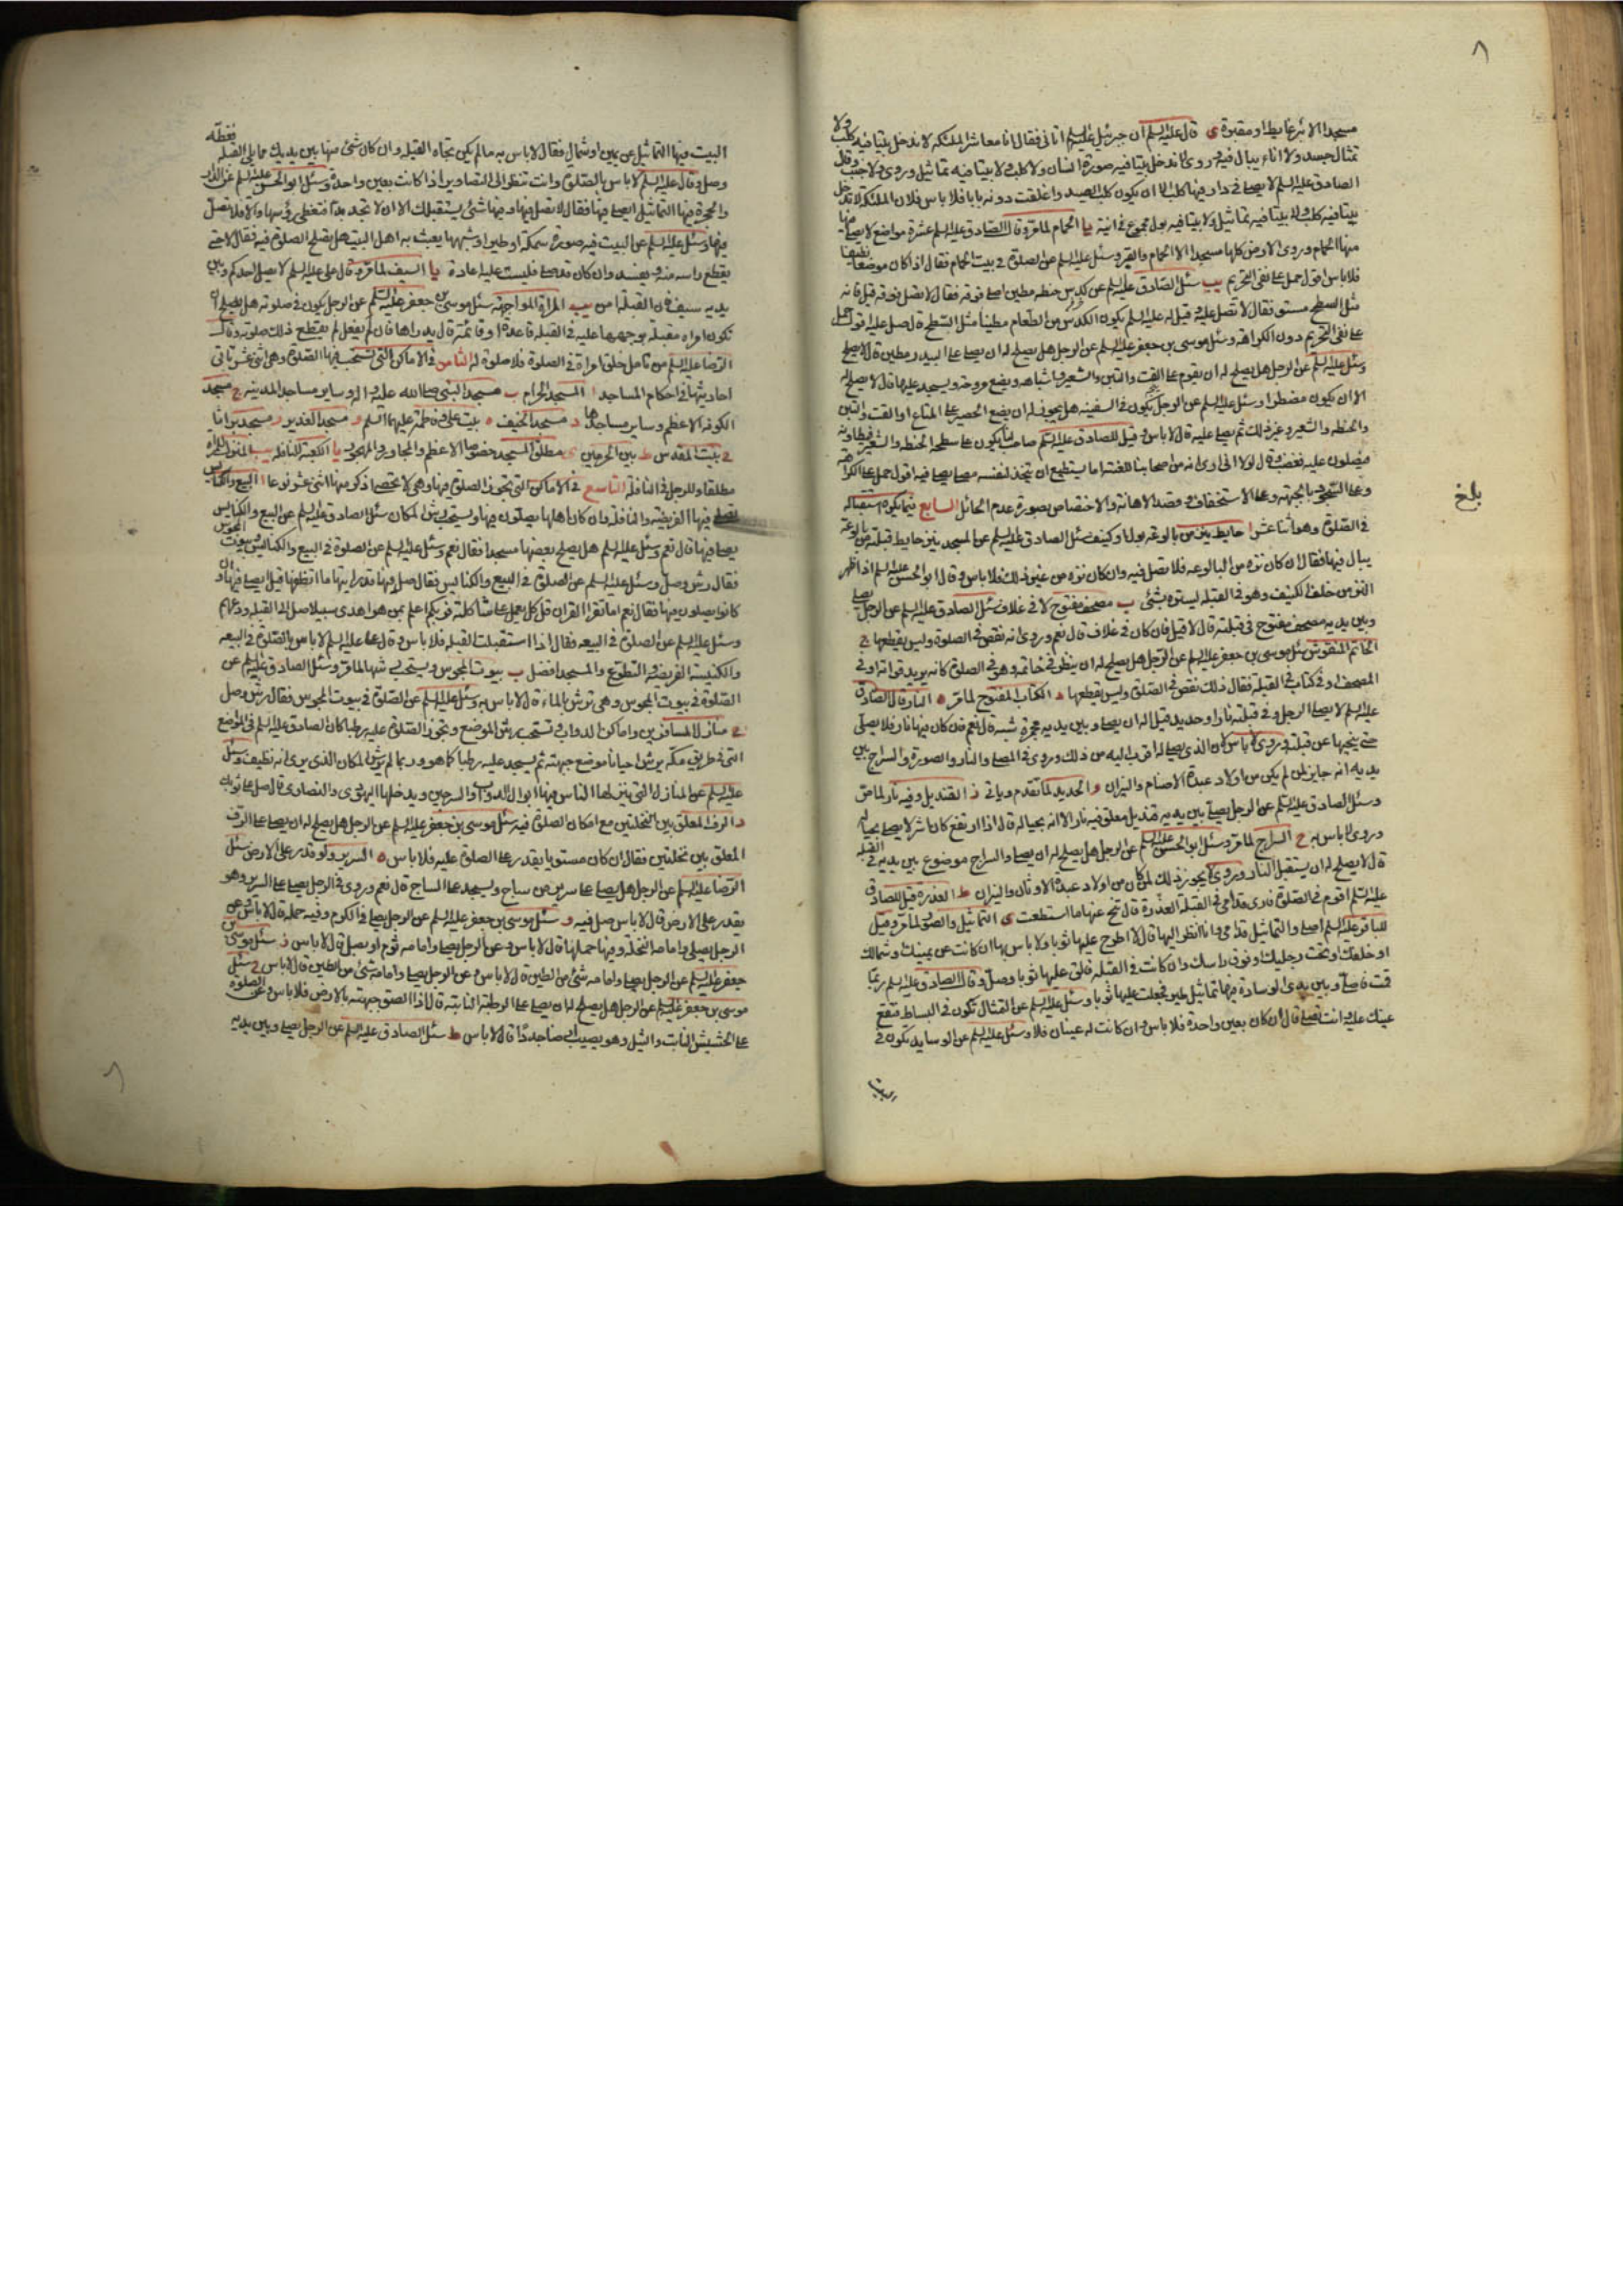 ٨
مسجدا الا بئر غايط او مقبرة ى قال عليه السلم ان جبرئيل عليه السلم اتانى فقال انا معاشر الملئكه لا ندخل بيتا فيه كلب ولا
تمثال جسد ولا اناء يبال فيه وروى لا ندخل بيتا فيه صورة انسان ولا كلب ولا بيتا فيه تماثيل وروى ولا جنب وقال
الصادق عليه السلم لا يصلى فى دار فيها كلب الا ان يكون كلب الصيد واغلقت دونه بابا فلا باس فان الملئكة لا تدخل
بيتا فيه كلب ولا بيتا فيه تماثيل ولا بيتا فيه بول مجموع فى انية يا الحمام لما مر وقال الصادق عليه السلم عشرة مواضع لا يصلى فيها
منها الحمام وروى الارض كلها مسجد الا الحمام والقبر وسئل عليه السلم عن الصلوة فى بيت الحمام فقال اذا كان موضعا نظيفا
فلا باس اقول حمل على نفى التحريم يب سئل الصادق عليه السلم عن كدس حنطه مطين اصلى فوقه فقال لا تصل فوقه قيل فانه
مثل السطح مستو فقال لا تصل عليه وقيل له عليه السلم يكون الكدس من الطعام مطينا مثل السطح قال صل عليه اقول حمل
على نفى التحريم دون الكراهة وسئل موسى بن جعفر عليه السلم عن الرجل هل يصلح له ان يصلى على البيدر مطين قال لا يصلح
وسئل عليه السلم عن الرجل هل يصلح له ان يقوم على القت والتبن والشعير واشباهه ويضع مروحة ويسجد عليها قال لا يصلح له
الا ان يكون مضطرا وسئل عليه السلم عن الرجل يكون فى السفينه هل يجوز له ان يضع الحصير على المتاع او القت والتبن
والحنطه والشعير وغير ذلك ثم يصلى عليه قال لا باس وقيل للصادق عليه السلم صاحب لنا يكون على سطحه الحنطه والشعير فيطاونه
فيصلون عليه فغضب وقال لولا انى ارى انه من اصحابنا للعنته اما يستطيع ان يتخذ لنفسه مصلى يصلى فيه اقول حمل على الكراهة
وعلى السجود بالجبهة وعلى الاستخفاف وقصد الاهانة والاختصاص بصورة عدم الحائل السابع فيما يكره استقباله
فى الصلوة وهو اثنا عشر ا حايط ينز من بالوعة بول او كنيف سئل الصادق عليه السلم عن المسجد ينز حايط قبلته من بالوعة
يبال فيها فقال ان كان نزه من البالوعه فلا تصل فيه وان كان نزه من غير ذلك فلا باس وقال ابو الحسن عليه السلم اذا ظهر
النز من خلف الكنيف وهو فى القبله يستره بشئ ب مصحف مفتوح لا فى غلاف سئل الصادق عليه السلم عن الرجل يصلى
وبين يديه مصحف مفتوح فى قبلته قال لا قيل فان كان فى غلاف قال نعم وروى انه نقص فى الصلوة وليس يقطعها ج
الخاتم المنقوش سئل موسى بن جعفر عليه السلم عن الرجل هل يصلح له ان ينظر فى خاتمه وهو فى الصلوة كانه يريد قراته او فى
المصحف او فى كتاب فى القبلة فقال ذلك نقص فى الصلوة وليس يقطعها د الكتاب المفتوح لما مر ه النار قال الصادق
عليه السلم لا يصلى الرجل وفى قبلته نار او حديد قيل اله ان يصلى وبين يديه مجمرة شبه قال نعم فان كان فيها نار فلا يصلى
حتى ينحيها عن قبلته وروى لا باس لان الذى يصلى له اقرب اليه من ذلك وروى فى المصلى والنار والصورة والسراج بين
يديه انه جايز لمن لم يكن من اولاد عبدة الاصنام والنيران و الحديد لما تقدم وياتى ز القنديل وفيه نار لما مر
وسئل الصادق عليه السلم عن الرجل يصلى بين يديه قنديل معلق فيه نار الا انه بحياله قال اذا ارتفع كان شرا لا يصلى بحياله
وروى لا باس به ح السراج لما مر وسئل ابو الحسن عليه السلم عن الرجل هل يصلح له ان يصلى والسراج موضوع بين يديه فى القبله
قال لا يصلح له ان يستقبل النار وروى يجوز ذلك لمن كان من اولاد عبدة الاوثان والنيران ط العذرة قيل للصادق
عليه السلم اقوم فى الصلوة فارى قدامى فى القبلة العذرة قال تنح عنها ما استطعت ى التماثيل والصور لما مر وقيل
للباقر عليه السلم اصلى والتماثيل قدامى وانا انظر اليها قال لا اطرح عليها ثوبا ولا باس بها ان كانت عن يمينك او شمالك
او خلفك او تحت رجليك او فوق راسك وان كانت فى القبله فالق عليها ثوبا وصل وقال الصادق عليه السلم ربما
قمت فاصلى وبين يدى الوسادة فيها تماثيل طير فجعلت عليها ثوبا وسئل عليه السلم عن التمثال تكون فى البساط فتقع
عينك عليه وانت تصلى قال ان كان بعين واحدة فلا باس وان كانت له عينان فلا وسئل عليه السلم عن الوسايد تكون فى
البيت
بلغ
البيت فيها التماثيل عن يمين او شمال فقال لا باس به ما لم يكن تجاه القبله وان كان شئ منها بين يديك مما يلى القبله فغطه
وصل وقال عليه السلم لا باس بالصلوة وانت تنظر الى التصاوير اذا كانت بعين واحدة وسئل ابو الحسن عليه السلم عن الدار
والحجرة فيها التماثيل ايصلى فيها فقال لا تصل فيها وفيها شئ يستقبلك الا ان لا تجد بدا فتقطع رؤسها والا فلا تصل
فيها وسئل عليه السلم عن البيت فيه صورة سمكة او طير او شبهها يعبث به اهل البيت هل تصلح الصلوة فيه فقال لا حتى
يقطع راسه منه ويفسد وان كان قد صلى فليست عليه اعادة يا السيف لما مر وقال على عليه السلم لا يصل احدكم وبين
يديه سيف فان القبلة امن يب المراة المواجهة سئل موسى بن جعفر عليه السلم عن الرجل يكون فى صلوته هل يصلح ان
تكون امراة مقبلة بوجهها عليه فى القبلة قاعدة او قائمة قال يدراها فان لم يفعل لم يقطع ذلك صلوته وقال
الرضا عليه السلم من تامل خلق امراة فى الصلوة فلا صلوة له الثامن فى الاماكن التى تستحب فيها الصلوة وهى اثنى عشر تاتى
احاديثها فى احكام المساجد ا المسجد الحرام ب مسجد النبى صلى الله عليه واله وساير مساجد المدينه ج مسجد
الكوفه الاعظم وساير مساجدها د مسجد الخيف ه بيت على وفاطمة عليهما السلم و مسجد الغدير ز مسجد براثا
ح بيت المقدس ط بين الحرمين ى مطلق المسجد خصوصا الاعظم والمجاور والمهجور يا الكعبة للنافله يب المنزل للمراة
مطلقا وللرجل فى النافلة التاسع فى الاماكن التى تجوز الصلوة فيها وهى لا تحصى اذكر منها اثنى عشر نوعا ا البيع والكنايس
تصلى فيها الفريضه والنافلة وان كان اهلها يصلون فيها ويستحب رش المكان سئل الصادق عليه السلم عن البيع والكنايس
يصلى فيها قال نعم وسئل عليه السلم هل يصلح بعضها مسجدا فقال نعم وسئل عليه السلم عن الصلوة فى البيع والكنايس وبيوت المجوس
فقال رش وصل وسئل عليه السلم عن الصلوة فى البيع والكنايس فقال صل فيها قد رايتها ما انظفها قيل ايصلى فيها وان
كانوا يصلون فيها فقال نعم اما تقرا القران قل كل يعمل على شاكلته فربكم اعلم بمن هو اهدى سبيلا صل الى القبله ودعهم
وسئل عليه السلم عن الصلوة فى البيعه فقال اذا استقبلت القبله فلا باس وقال على عليه السلم لا باس بالصلوة فى البيعه
والكنيسة الفريضه والتطوع والمسجد افضل ب بيوت المجوس ويستحب رشها لما مر وسئل الصادق عليه السلم عن
الصلوة فى بيوت المجوس وهى ترش بالماء قال لا باس به وسئل عليه السلم عن الصلوة فى بيوت المجوس فقال رش وصل
ج منازل المسافرين واماكن الدواب وتستحب رش الموضع وتجوز الصلوة عليه رطبا كان الصادق عليه السلم فى المواضع
التى فى طريق مكة يرش احيانا موضع جبهته ثم يسجد عليه رطبا كما هو وربما لم يرش المكان الذى يرى انه نظيف وسئل
عليه السلم عن المنازل التى ينزلها الناس فيها ابوال الدواب والسرجين ويدخلها اليهودى والنصارى قال صل على ثوبك
د الرف المعلق بين النخلتين مع امكان الصلوة فيه سئل موسى بن جعفر عليه السلم عن الرجل هل يصلح له ان يصلى على الرف
المعلق بين نخلتين فقال ان كان مستويا يقدر على الصلوة عليه فلا باس ه السرير ولو قدر على الارض سئل
الرضا عليه السلم عن الرجل هل يصلى على سرير من ساج ويسجد على الساج قال نعم وروى فى الرجل يصلى على السرير وهو
يقدر على الارض قال لا باس صل فيه و سئل موسى بن جعفر عليه السلم عن الرجل يصلى فى الكرم وفيه حمله قال لا باس وعن
الرجل يصلى وامامه النخلة وفيها حملها قال لا باس وعن الرجل يصلى وامامه ثوم او بصل قال لا باس ز سئل موسى بن
جعفر عليه السلم عن الرجل يصلى وامامه شئ من الطين قال لا باس وعن الرجل يصلى وامامه شئ من الطين قال لا باس ح سئل
موسى بن جعفر عليه السلم عن الرجل هل يصلح له ان يصلى على الرطبة النابتة قال اذا الصق جبهته بالارض فلا باس وعن الصلوة
على الحشيش النابت والثيل وهو يصيب ارضا جددا قال لا باس ط سئل الصادق عليه السلم عن الرجل يصلى وبين يديه
٨